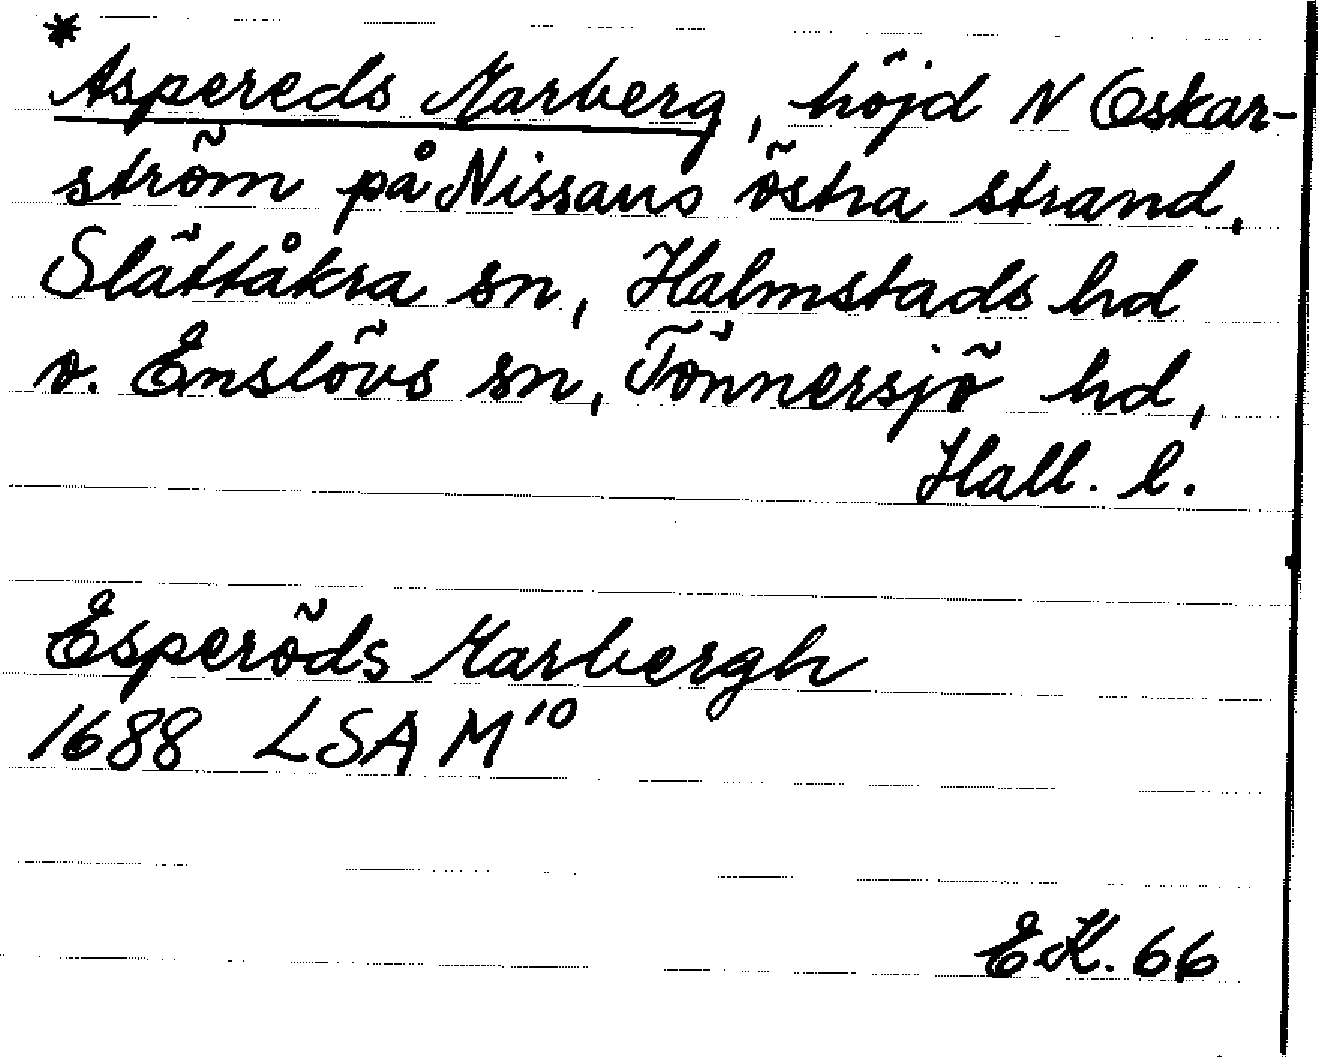 *
Aspereds Marberg, höjd N Oskar-
ström på Nissans östra strand,
Slättåkra sn, Halmstads hd
o. Enslövs sn, Tönnersjö hd,
Hall. l.
Esperöds Marbergh
1688 LSA M¹⁰
E.K. 66